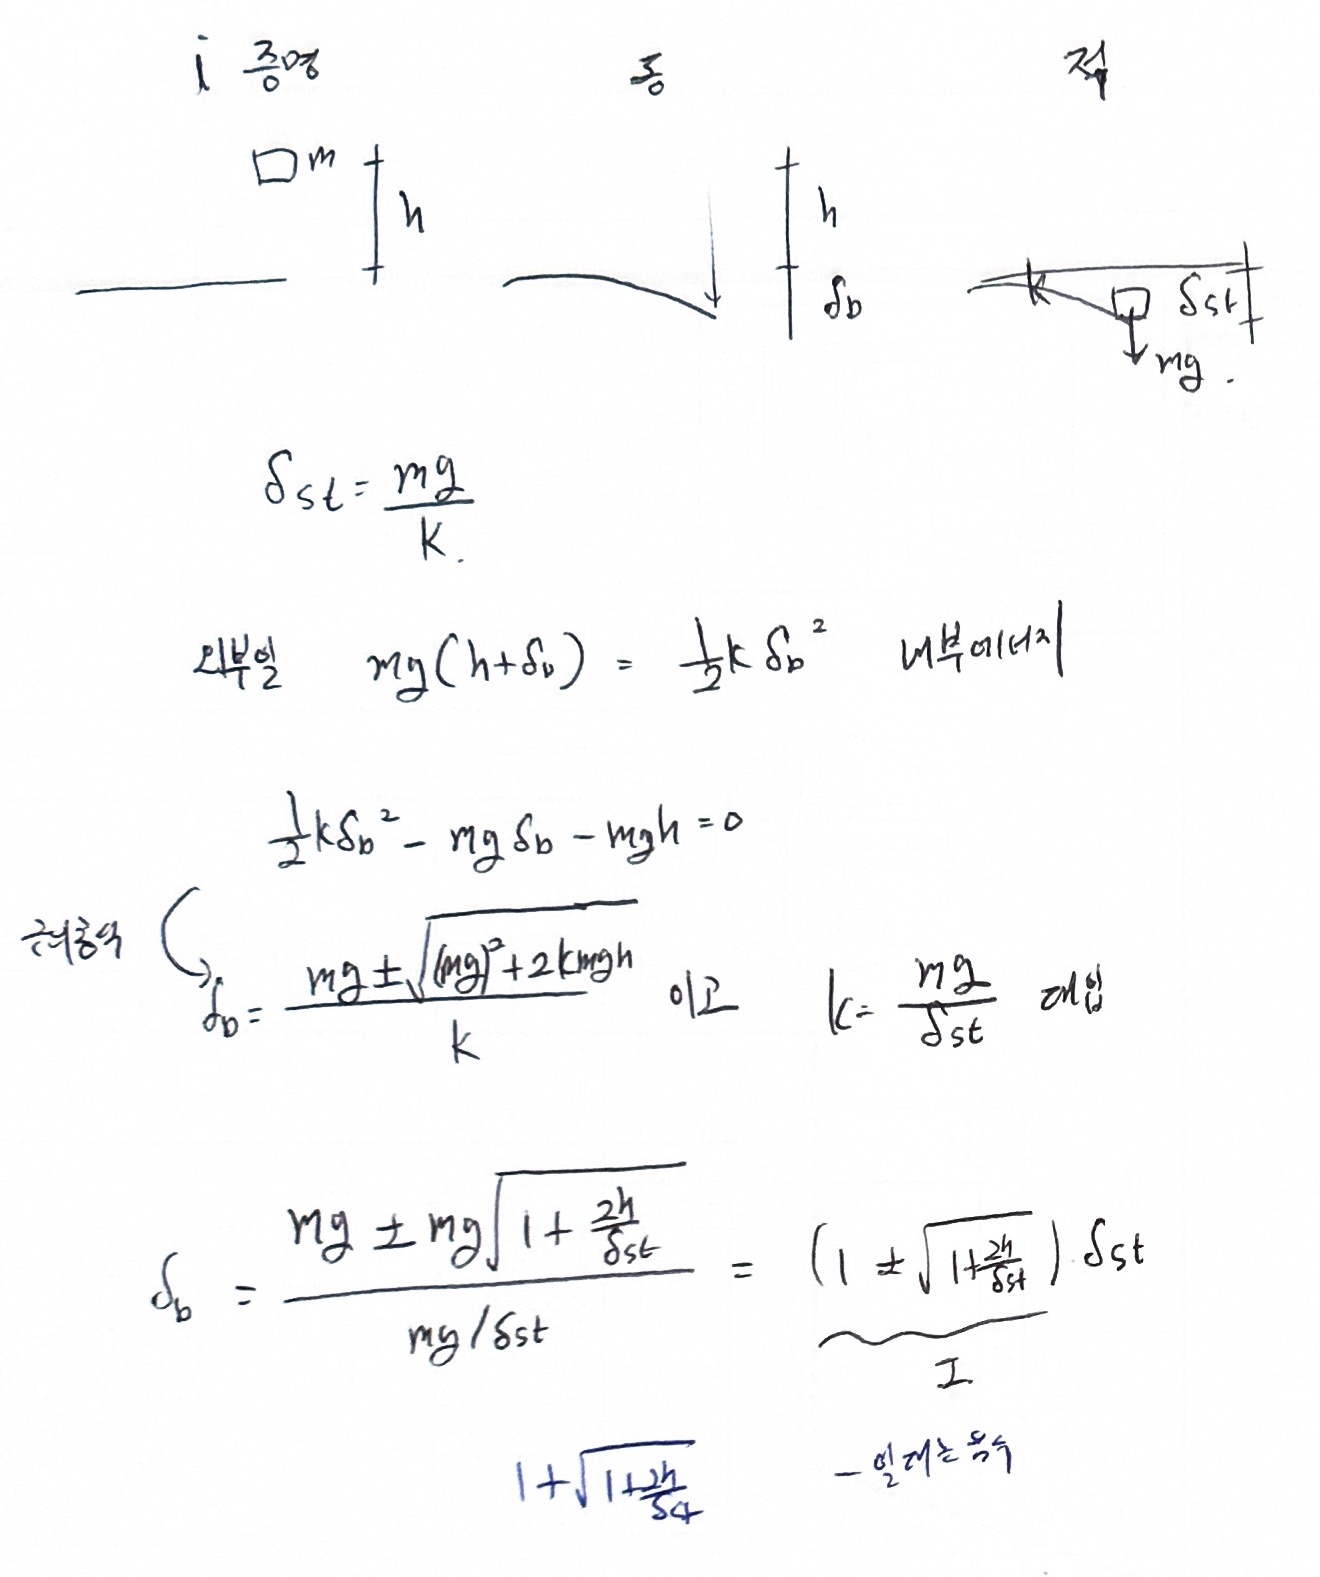 i 증명 동 정
m h h
δb k δst
mg .
δst = mg / k .
외부일 mg(h+δb) = 1/2 k δb² 내부에너지
1/2 kδb² - mg δb - mgh = 0
근의공식 δb = (mg ± √((mg)² + 2kmgh)) / k 이고 k = mg / δst 대입
δb = (mg ± mg√(1 + 2h/δst)) / (mg/δst) = (1 ± √(1+2h/δst)) δst
I
1+√(1+2h/δst) - 일때는 음수